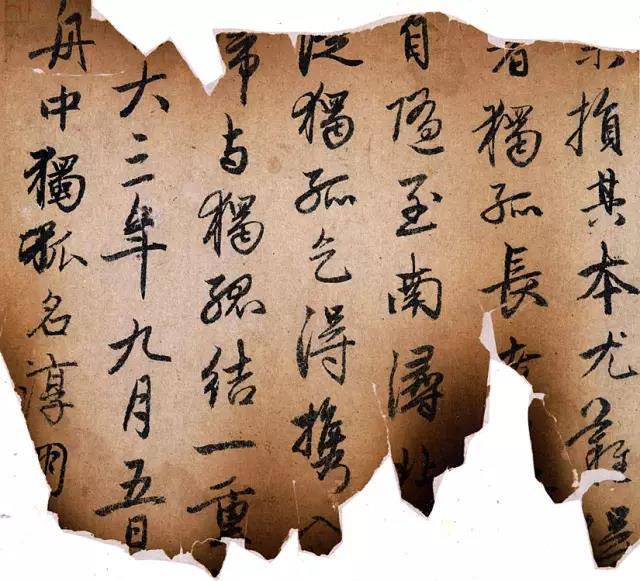 損其本尤難得
者獨孤長
自隨至南潯北
從獨孤乞得攜入
与獨孤結一重
大三年九月五日
舟中獨孤名淳朋